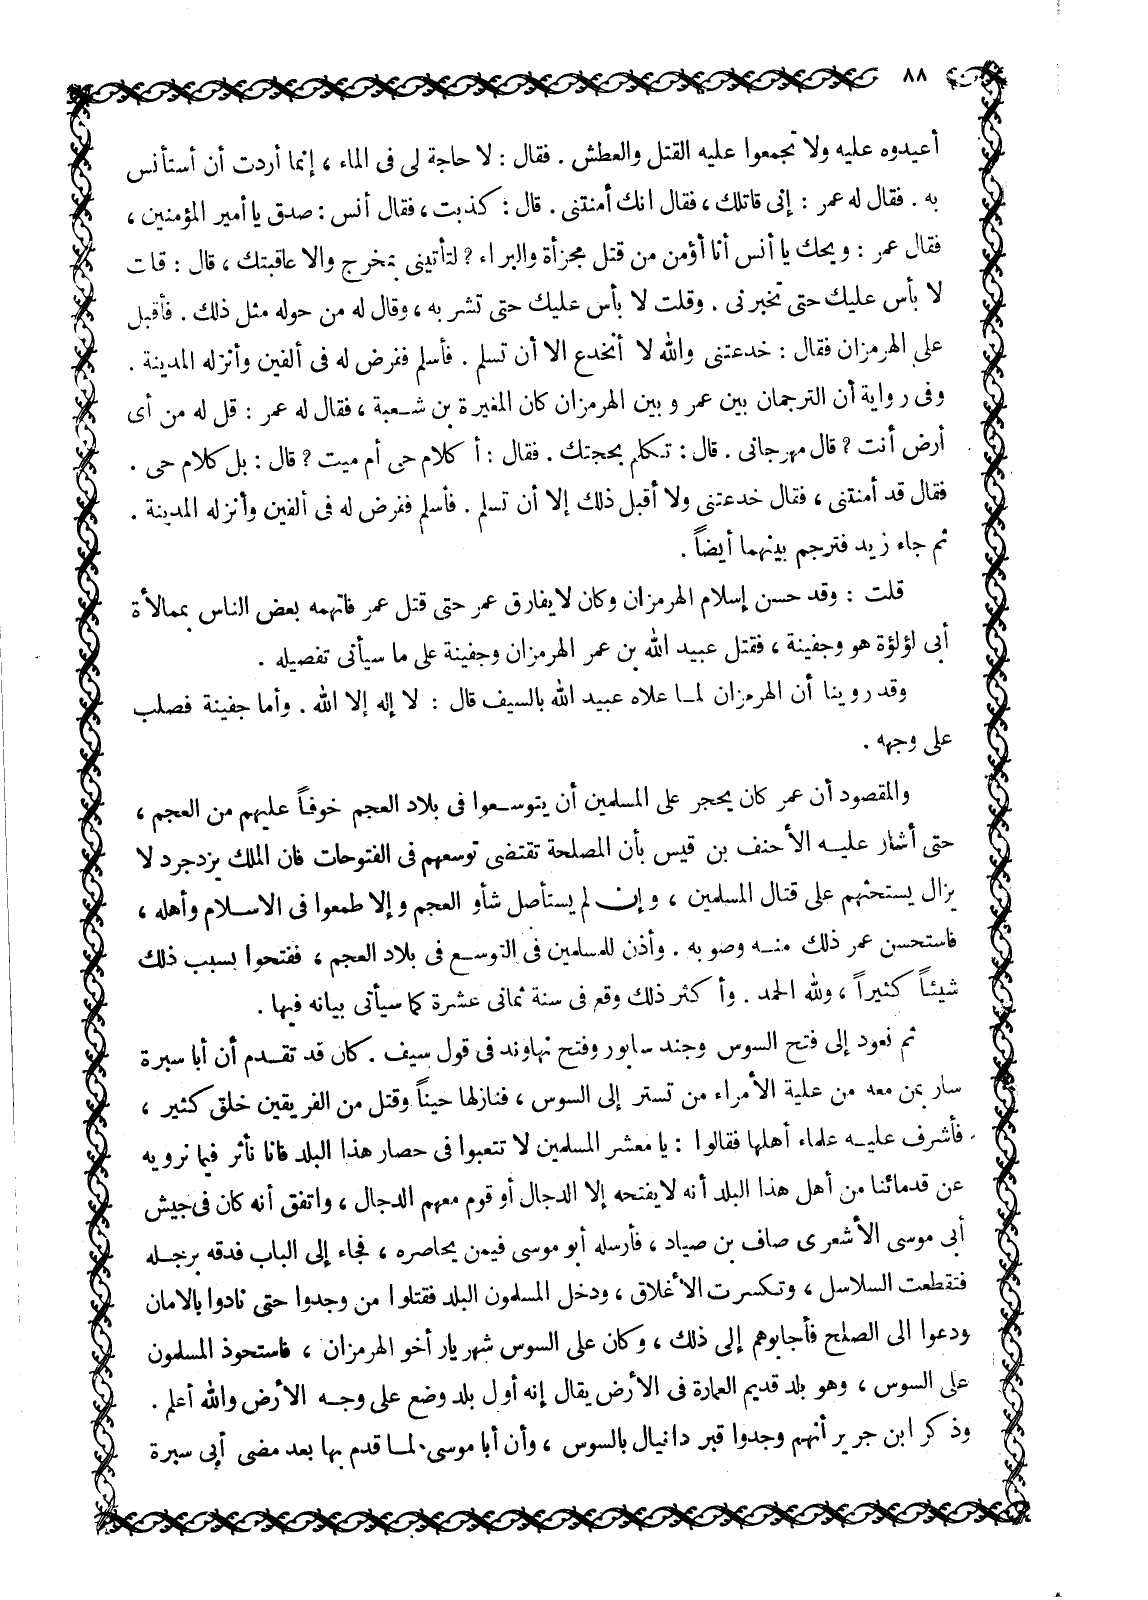 ٨٨
أعيدوه عليه ولا تجمعوا عليه القتل والعطش . فقال : لا حاجة لى فى الماء ، إنما أردت أن أستأنس
به . فقال له عمر : إنى قاتلك ، فقال انك أمنتنى . قال : كذبت ، فقال أنس : صدق يا أمير المؤمنين ،
فقال عمر : ويحك يا أنس أنا أؤمن من قتل مجزأة والبراء ? لتأتينى بمخرج والا عاقبتك ، قال : قلت
لا بأس عليك حتى تخبرنى . وقلت لا بأس عليك حتى تشربه ، وقال له من حوله مثل ذلك . فأقبل
على الهرمزان فقال : خدعتنى والله لا أنخدع الا أن تسلم . فأسلم ففرض له فى ألفين وأنزله المدينة .
وفى رواية أن الترجمان بين عمر وبين الهرمزان كان المغيرة بن شعبة ، فقال له عمر : قل له من أى
أرض أنت ? قال مهرجانى . قال : تكلم بحجتك . فقال : أكلام حى أم ميت ? قال : بل كلام حى .
فقال قد أمنتنى ، فقال خدعتنى ولا أقبل ذلك إلا أن تسلم . فأسلم ففرض له فى ألفين وأنزله المدينة .
ثم جاء زيد فترجم بينهما أيضاً .
قلت : وقد حسن إسلام الهرمزان وكان لا يفارق عمر حتى قتل عمر فاتهمه بعض الناس بممالأة
أبى لؤلؤة هو وجفينة ، فقتل عبيد الله بن عمر الهرمزان وجفينة على ما سيأتى تفصيله .
وقد روينا أن الهرمزان لما علاه عبيد الله بالسيف قال : لا إله إلا الله . وأما جفينة فصلب
على وجهه .
والمقصود أن عمر كان يحجر على المسلمين أن يتوسعوا فى بلاد العجم خوفاً عليهم من العجم ،
حتى أشار عليه الأحنف بن قيس بأن المصلحة تقتضى توسعهم فى الفتوحات فان الملك يزدجرد لا
يزال يستحثهم على قتال المسلمين ، وإن لم يستأصل شأو العجم وإلا طمعوا فى الاسلام وأهله ،
فاستحسن عمر ذلك منه وصوبه . وأذن للمسلمين فى التوسع فى بلاد العجم ، ففتحوا بسبب ذلك
شيئاً كثيراً ، ولله الحمد . وأكثر ذلك وقع فى سنة ثمانى عشرة كما سيأتى بيانه فيها .
ثم نعود إلى فتح السوس وجند سابور وفتح نهاوند فى قول سيف . كان قد تقدم أن أبا سبرة
سار بمن معه من علية الأمراء من تستر إلى السوس ، فنازلها حيناً وقتل من الفريقين خلق كثير ،
فأشرف عليه علماء أهلها فقالوا : يا معشر المسلمين لا تتعبوا فى حصار هذا البلد فانا نأثر فيما نرويه
عن قدمائنا من أهل هذا البلد أنه لا يفتحه إلا الدجال أو قوم معهم الدجال ، واتفق أنه كان فى جيش
أبى موسى الأشعرى صاف بن صياد ، فأرسله أبو موسى فيمن يحاصره ، فجاء إلى الباب فدقه برجله
فتقطعت السلاسل ، وتكسرت الأغلاق ، ودخل المسلمون البلد فقتلوا من وجدوا حتى نادوا بالامان
ودعوا الى الصلح فأجابوهم إلى ذلك ، وكان على السوس شهريار أخو الهرمزان ، فاستحوذ المسلمون
على السوس ، وهو بلد قديم العمارة فى الأرض يقال إنه أول بلد وضع على وجه الأرض والله أعلم .
وذكر ابن جرير أنهم وجدوا قبر دانيال بالسوس ، وأن أبا موسى لما قدم بها بعد مضى أبى سبرة